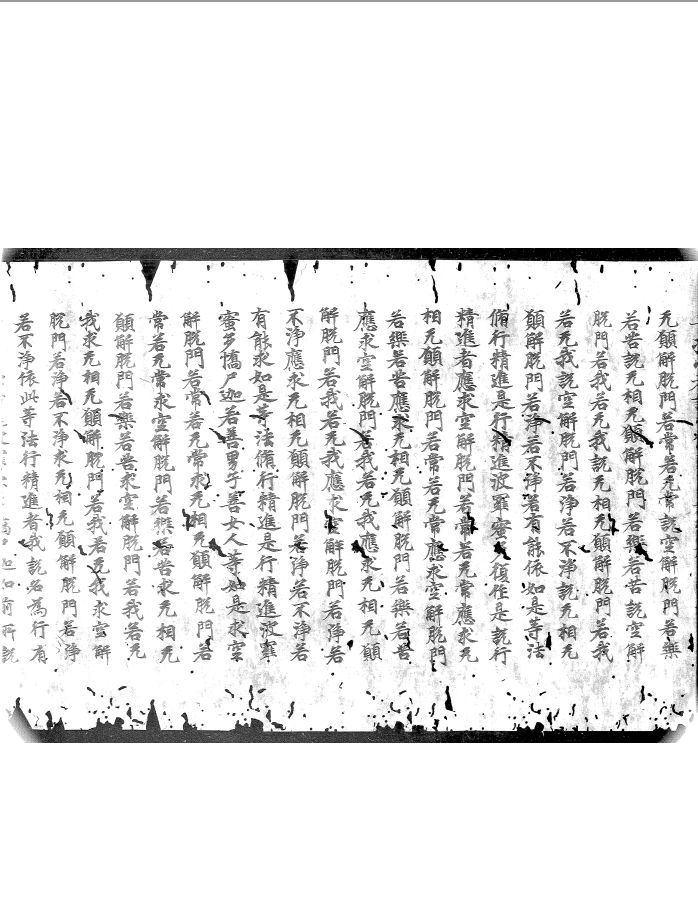 无願解脱門若常若无常說空解脱門若樂
若苦說无相无願解脱門若樂若苦說空解
脱門若我若无我說无相无願解脱門若我
若无我說空解脱門若淨若不淨說无相无
願解脱門若淨若不淨若有能依如是等法
脩行精進是行精進波羅蜜多復作是說行
精進者應求空解脱門若常若无常應求无
相无願解脱門若常若无常應求空解脱門
若樂若苦應求无相无願解脱門若樂若苦
應求空解脱門若我若无我應求无相无願
解脱門若我若无我應求空解脱門若淨若
不淨應求无相无願解脱門若淨若不淨若
有能求如是等法脩行精進是行精進波羅
蜜多憍尸迦若善男子善女人等如是求空
解脱門若常若无常求无相无願解脱門若
常若无常求空解脱門若樂若苦求无相无
願解脱門若樂若苦求空解脱門若我若无
我求无相无願解脱門若我若无我求空解
脱門若淨若不淨求无相无願解脱門若淨
若不淨依此等法行精進者我說名為行有
如前所說